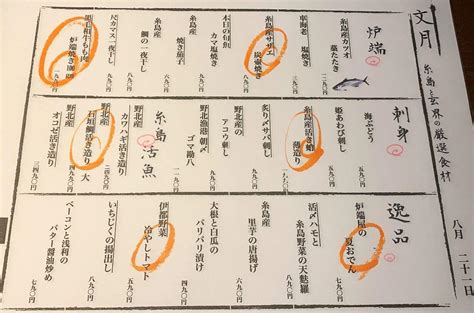 文月
糸島玄界の厳選食材
八月二十一日
炉端
糸島産カツオ
藁たたき
車海老 塩焼き
糸島産サザエ
炭壷焼き
本日の石魚
カマ塩焼き
糸島産
焼き茄子
糸島産
鯛の一夜干し
尺カマス一夜干し
黒毛和牛もも肉
炉端焼き
刺身
海ぶどう
姫あわび刺し
糸島産活き蛸
薄造り
炙り〆サバ刺し
野北産の
アコウ刺し
野北漁港朝〆
ゴマ勘八
糸島活魚
野北産
カワハギ活き造り
野北産
石垣鯛活き造り 大
オコゼ活き造り
三四九〇円
逸品
炉端屋の
夏おでん
活〆ハモと
糸島野菜の天麩羅
糸島産
里芋の唐揚げ
大根と白瓜の
パリパリ漬け
伊都野菜
冷やしトマト
いちじくの揚出し
ベーコンと浅利の
バター醤油炒め
七九〇円